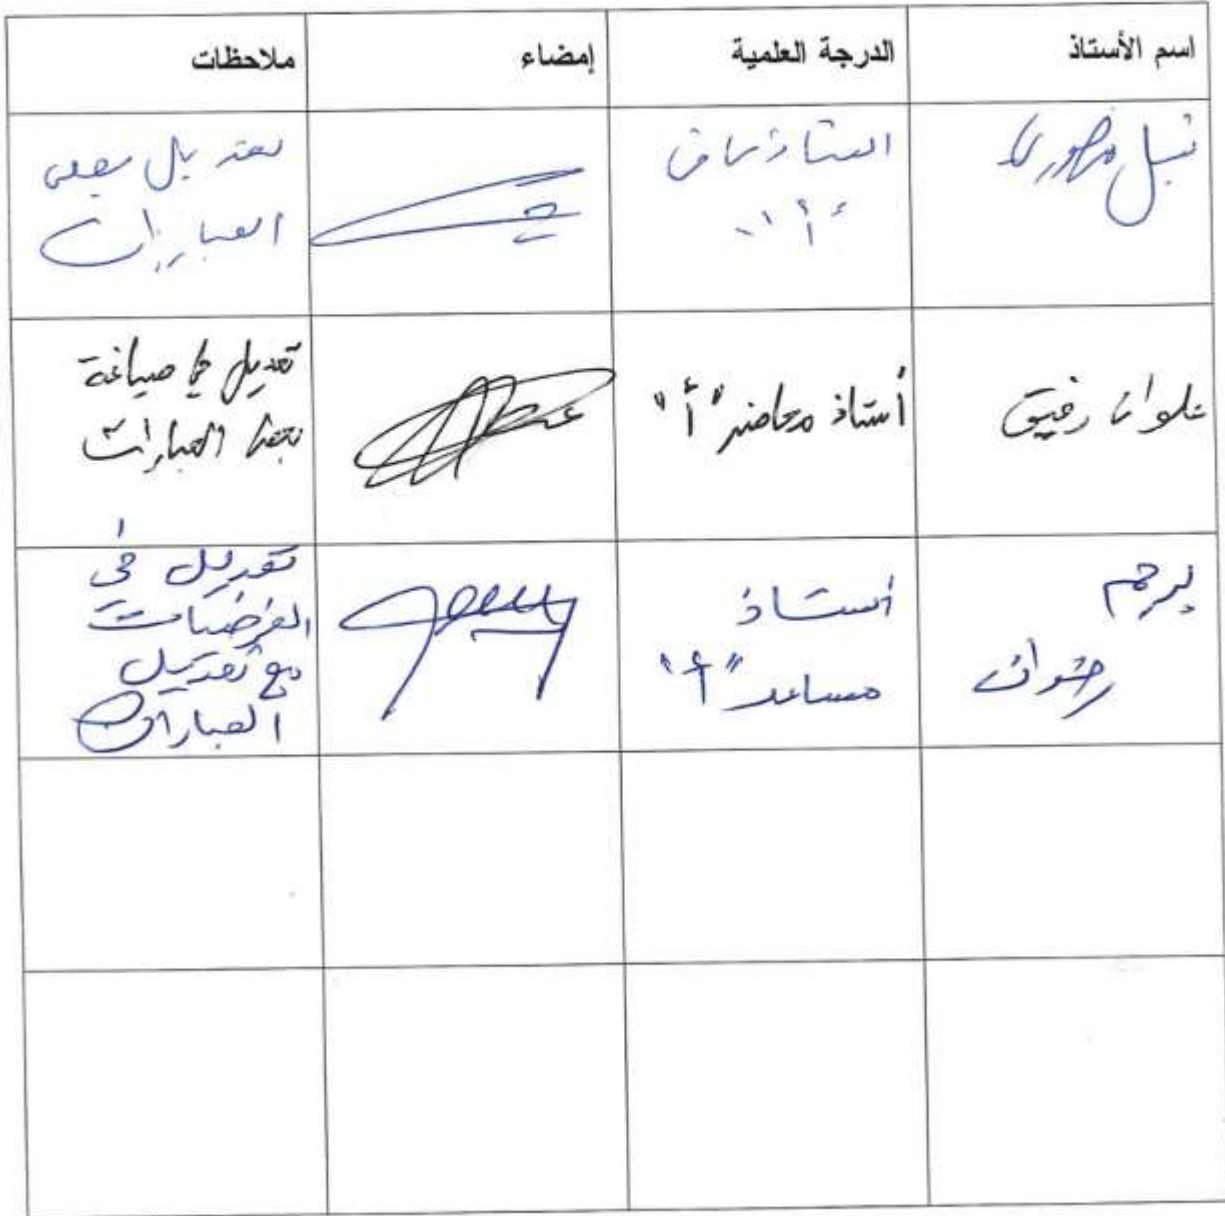 اسم الأستاذ الدرجة العلمية إمضاء ملاحظات
نبيل منصوري
أستاذ محاضر
"أ"
تعديل بعض
العبارات
علوان رفيق
أستاذ محاضر "أ"
تعديل في صياغة
بعض العبارات
يرحم
رضوان
أستاذ
مساعد "أ"
تعديل في
الفرضيات
مع تعديل
العبارات